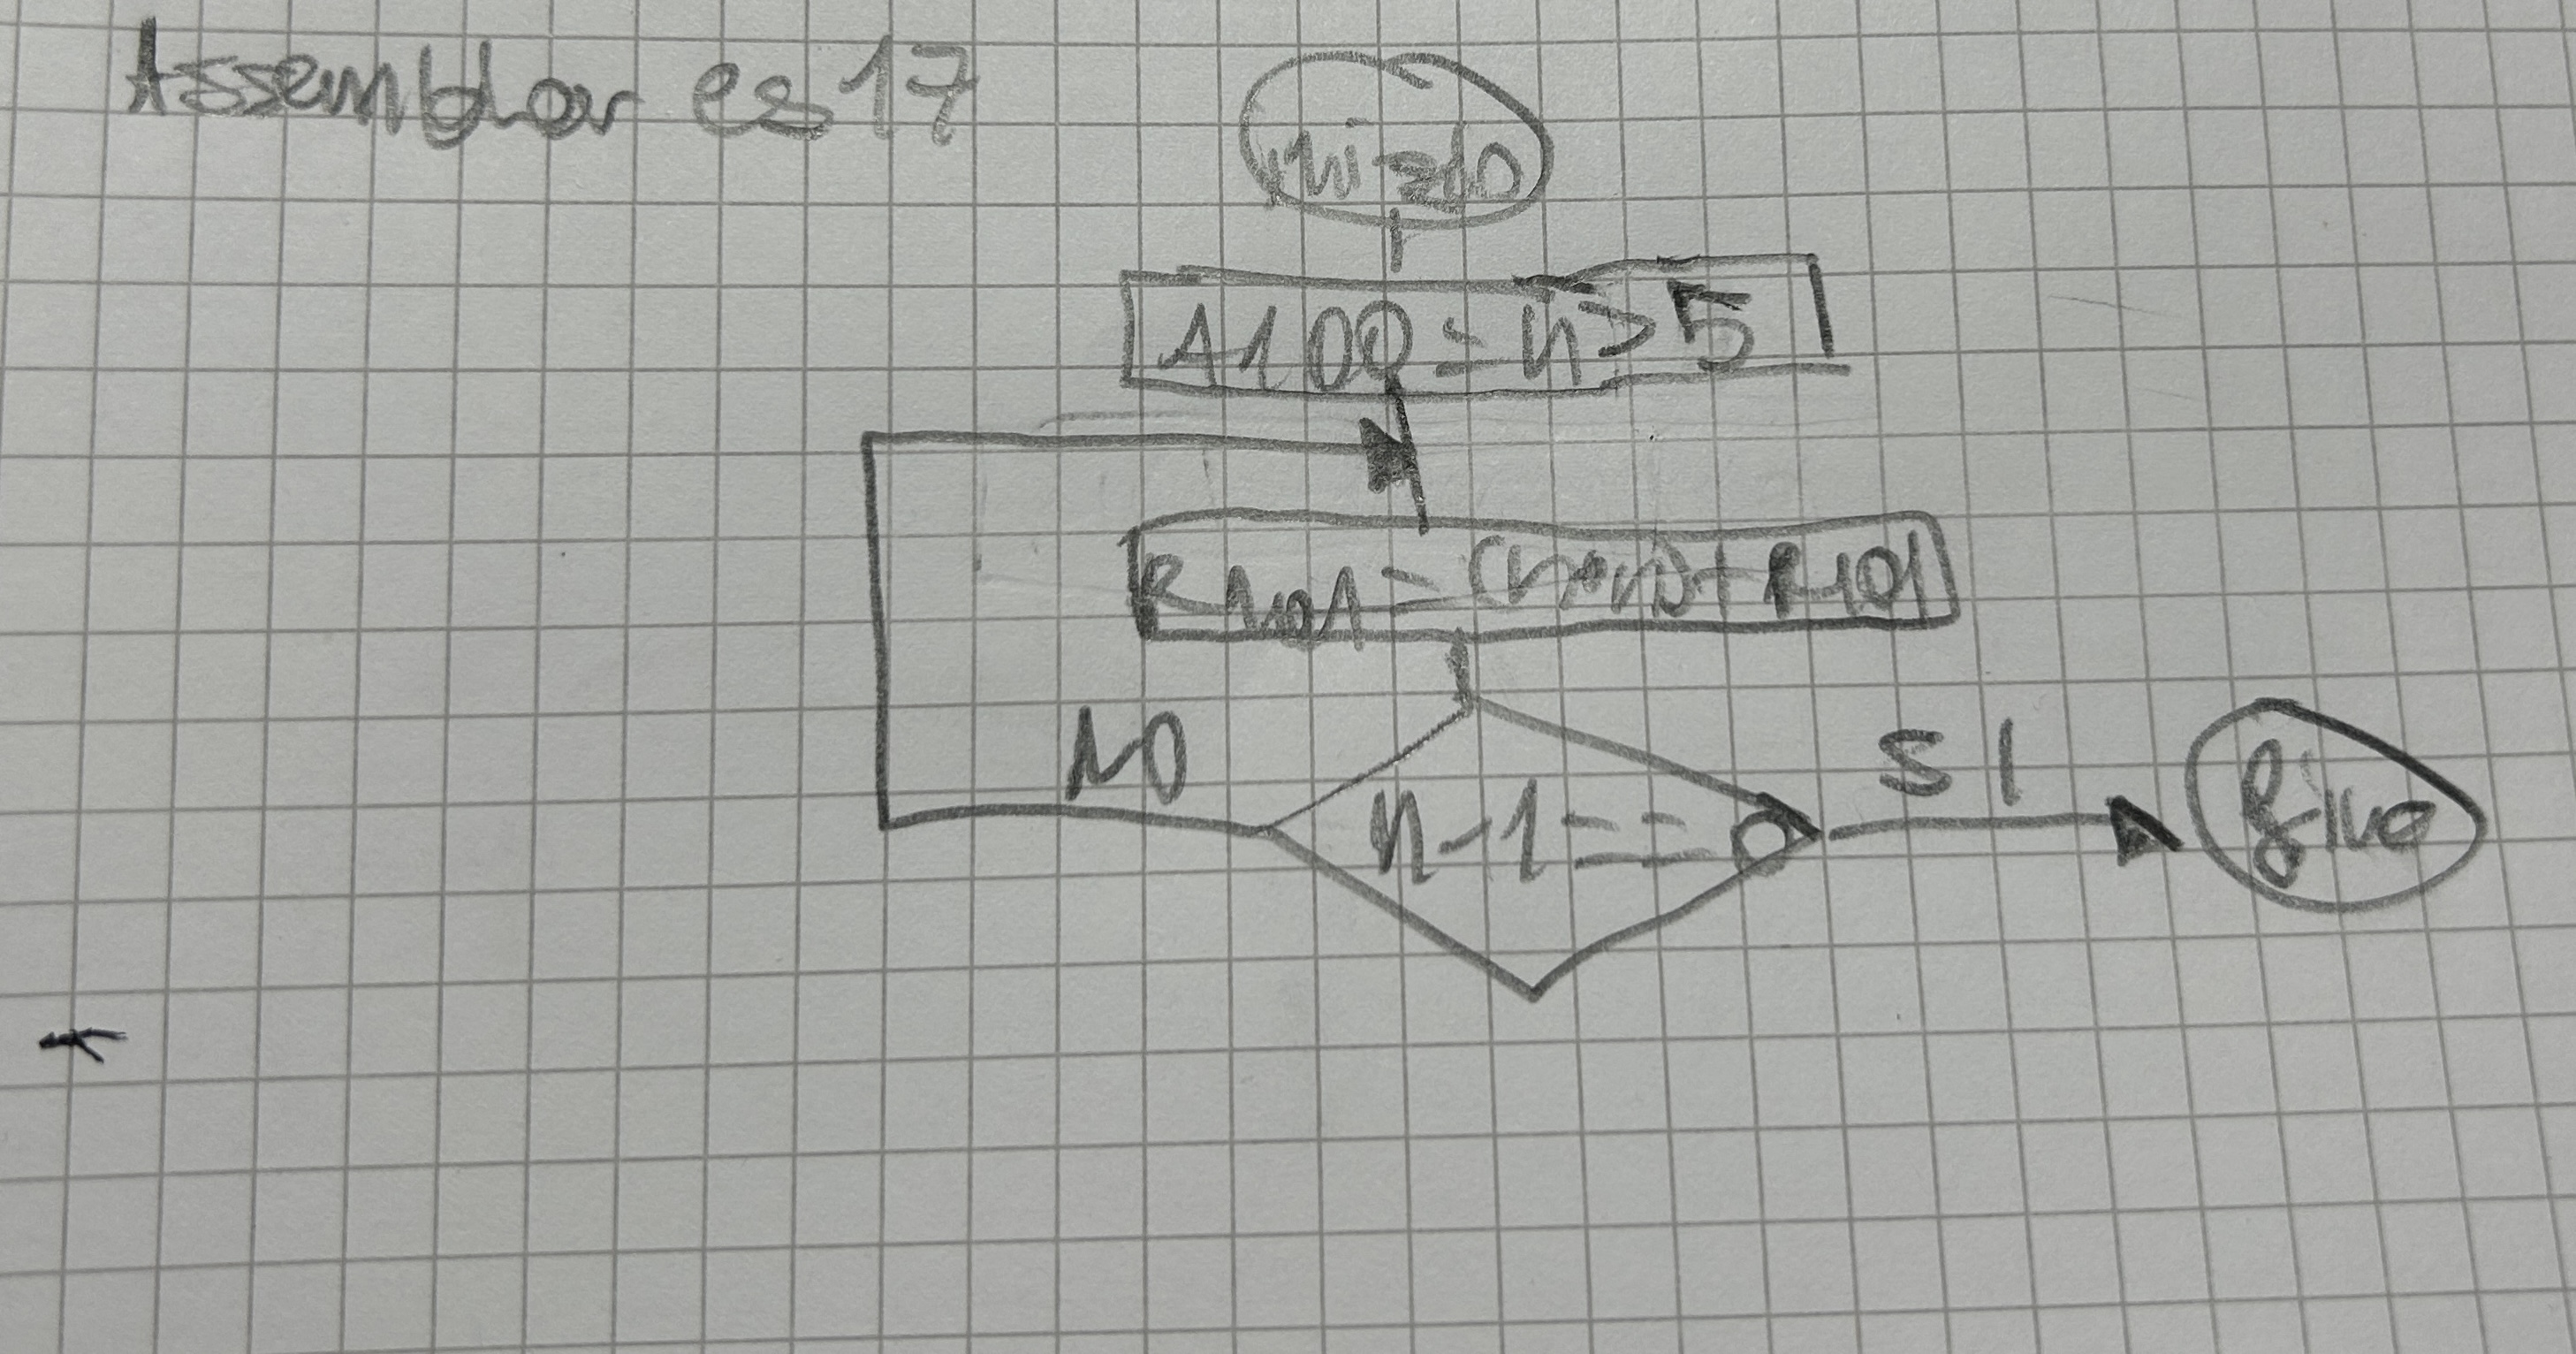 Assembler es17
inizio
A100 = n > 5
R101 = (n*n) + R101
NO
n-1 == 0
SI
fine